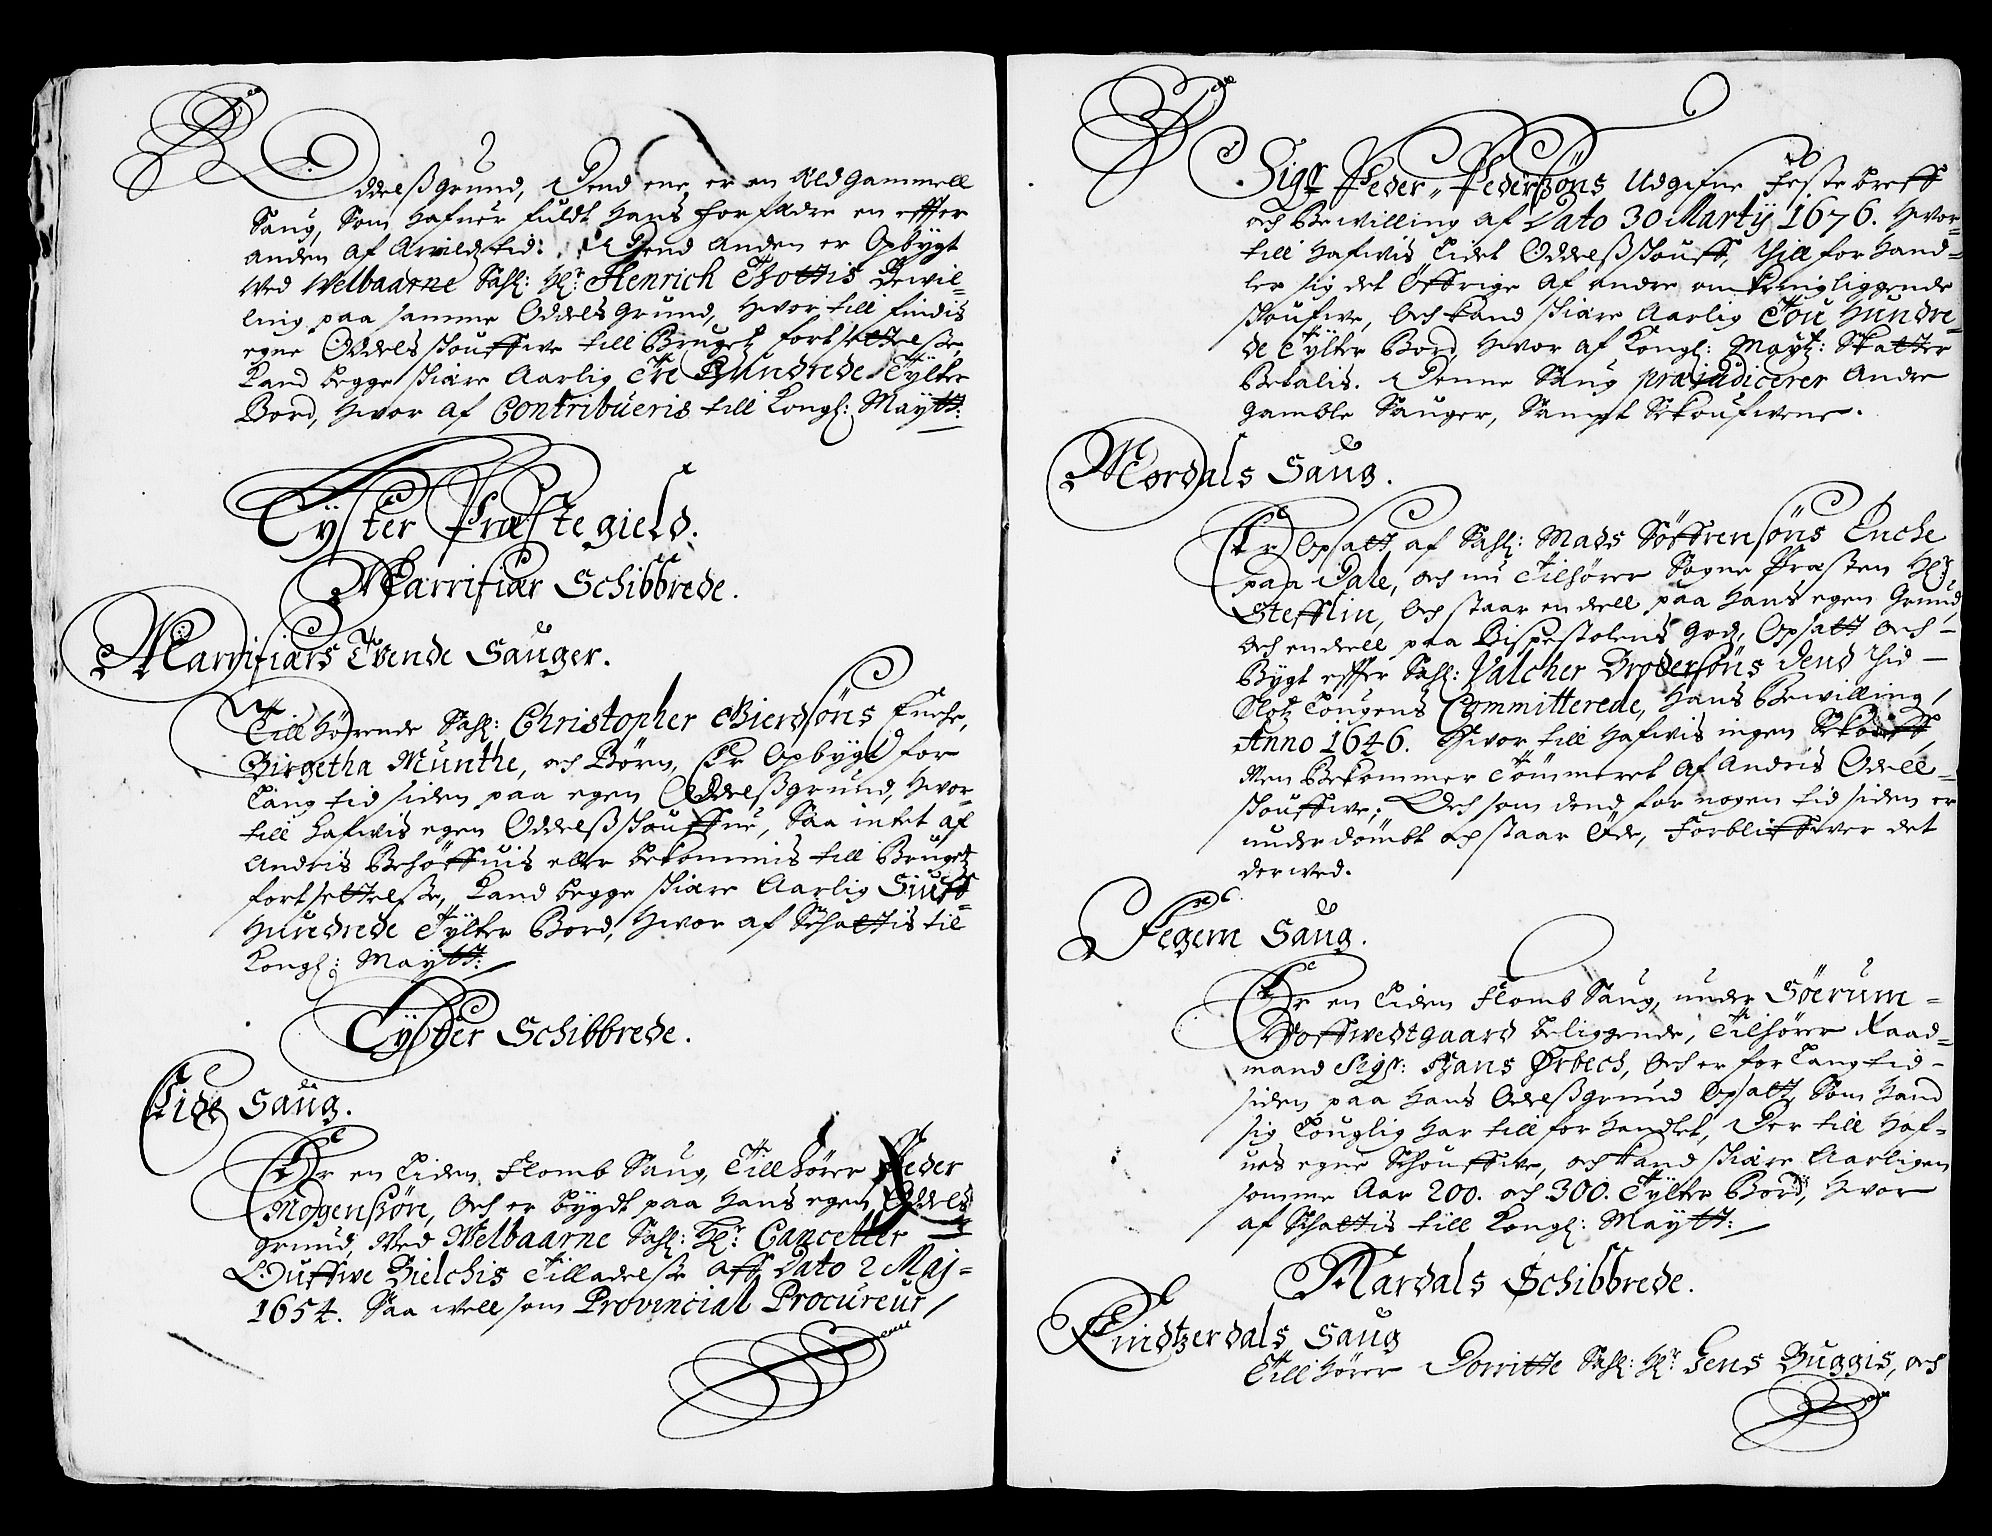 Oddelsß grund, Dend ene er en Ald gammell
Saug, Som Hafuer fuldt Hans forfædre en effter
anden af Arvildtid: Dend anden er Opbygt
Ved Welbaarne Sahl: Hr: Henrich Thottis Bewil-
ling paa samme Oddels Grund, Hvor till findis
egne Oddelsskouffwe till Brugetz fortsettelsße,
Kand begge skiære Aarlig Tre Hundrede Tylter
Bord, Hvor af Contribueris till Kongl: Maytt:
Lyster Præstegield.
Marrifiær Schibbrede.
Marrifiærs Tvende Sauger.
Till Hørende Sahl: Christopher Gierdsöns Enche,
Birgetha Munthe, och Børn, Er Opbygt for
Lang tid siden paa egen Oddelßgrund, Hvor-
till hafwis egen Oddelßskouffue, Saa intet af
Andris Behöffuis eller bekommis till Brugetz
fortsettelsße, Kand begge skiære Aarlig Siuff
Hundrede Tylter Bord, Hvor af Schattis til
Kongl: Maytt:
Lyster Schibbrede.
Eide Saug.
Er en Liden Flomb Saug, Tillhører Peder
Mogensßøn, Och er bygdt paa Hans egen Oddels
grund, Ved Welbaarne Sahl: Hr: Cancetler
Ouffwe Bielchis Tilladelsße aff Dato 2 Maj-
1654. Saa well som Provincial Procureur
Sigr Peder Pedersßöns Udgifne Feste breff
och Bewilling af Dato 30 Martij 1676. Hvor-
till Hafwis Lidet Oddelßskouff, Thill forhand-
ler sig det Öffrige af andre omkringliggende
skoufwe, Och kand skiære Aarlig Tou Hundre-
de Tylter Bord, Hvor af Kongl: Maytz: Skatter
Betalis. Denne Saug præjudicerer Andre
gamble Sauger, Sampt Skoufwene.
Mørdals Saug.
Er Opsatt af Sahl: Mads Söffrensöns Enche
paa Dale, och nu Tilhører Sogne Præsten Hr:
Stefflin, Och staar en dell paa Hans egen Grund,
och en dell paa Bispestolens God, Opsatt och-
Bygt effter Sahl: Valcher Brodersöns Dend Thid-
Slotz Lougens Committerede, Hans Bewilling,
Anno 1646. Hvor till Hafwis ingen Skouff,
Men Bekommer Tömmeret Af Andris Odell-
skouffwe; Och som dend for nogen tid siden er
underdömbt och staar Öde, Forbliffwer det
derwed.
Fegem Saug.
Er en Liden Flomb Saug, under Söerum-
Hoffwedtgaard beliggende, Tilhører Raad-
mand Sigr: Hans Ørbech, Och er for Lang tid-
siden paa Hans Odelßgrund Opsatt, Som Hand
sig Louglig Har till forhandlet, Der till Haf-
ues egne Skouffwe, och kand skiære Aarligen
somme Aar 200. och 300. Tylter Bord, Hvor
af Schattis till Kongl: Maytt:
Mardals Schibbrede.
Kindtzerdals Saug
Till hører Dorritte Sahl: Hr: Jens Buggis, och